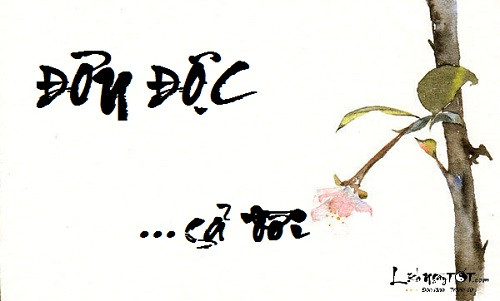 ĐƠN ĐỘC
...cả đời
LịchNgàyTỐT.com